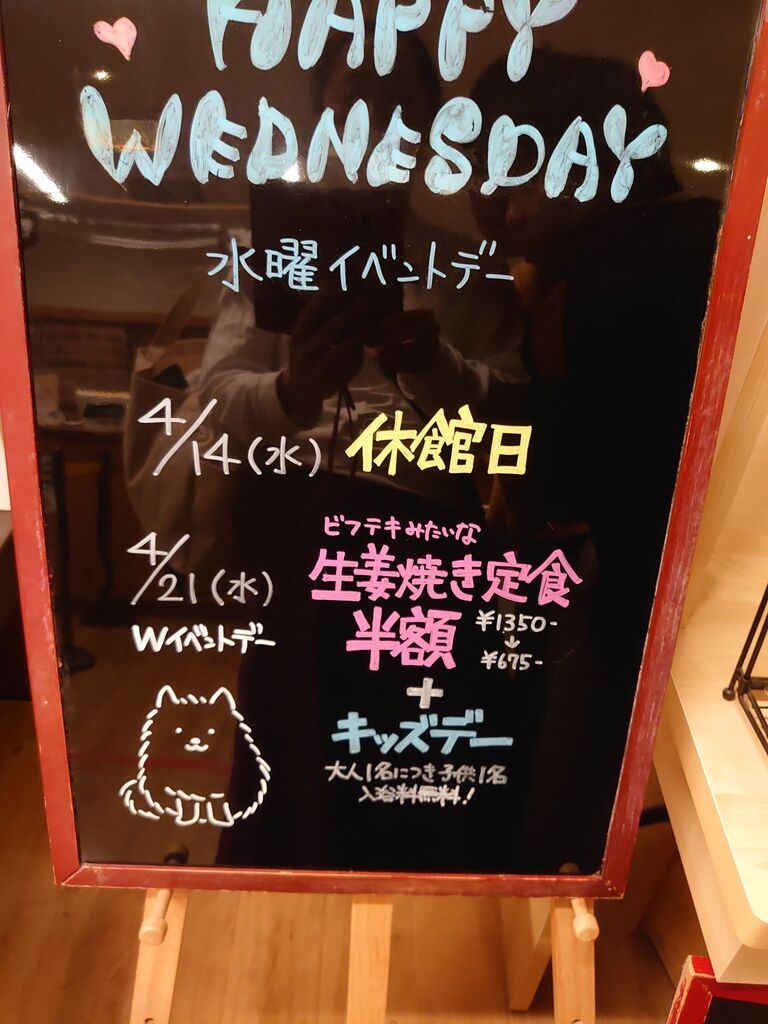 HAPPY
WEDNESDAY
水曜イベントデー
4/14(水) 休館日
ビフテキみたいな
4/21(水) 生姜焼き定食
Wイベントデー 半額 ¥1350-
↓
¥675-
+
キッズデー
大人1名につき子供1名
入浴料無料!